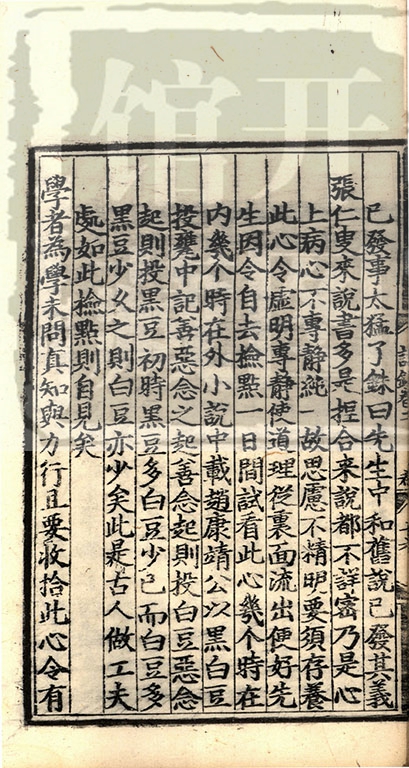 已發事太猛了銖曰先生中和舊說已發其義
張仁叟來說書多是捏合來說都不詳密乃是心
上病心不專靜純一故思慮不精明要須存養
此心令虛明專靜使道理從裏面流出便好先
生因令自去撿點一日間試看此心幾个時在
内幾个時在外小說中載趙康靖公以黑白豆
投甕中記善惡念之起善念起則投白豆惡念
起則投黑豆初時黑豆多白豆少已而白豆多
黑豆少久之則白豆亦少矣此是古人做工夫
處如此撿點則自見矣
學者為學未問真知與力行且要收拾此心令有
开馆